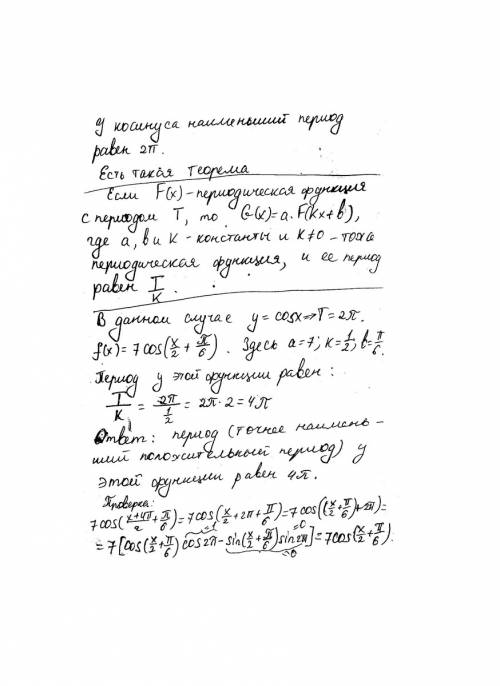 У косинуса наименьший период
равен 2π.
Есть такая теорема
Если F(x) - периодическая функция
с периодом T, то G(x)=a·F(kx+b),
где a, b и k - константы и k≠0 - тоже
периодическая функция, и ее период
равен T/k.
В данном случае y=cosx ⇒ T=2π.
f(x)=7cos(x/2+π/6). Здесь a=7; k=1/2; b=π/6.
Период у этой функции равен:
T/k = 2π/(1/2) = 2π·2=4π
Ответ: период (точнее наимень-
ший положительный период) у
этой функции равен 4π.
Проверка:
7cos((x+4π)/2+π/6)=7cos(x/2+2π+π/6)=7cos((x/2+π/6)+2π)=
=7[cos(x/2+π/6)cos2π-sin(x/2+π/6)sin2π]=7cos(x/2+π/6).
=1 =0 =0